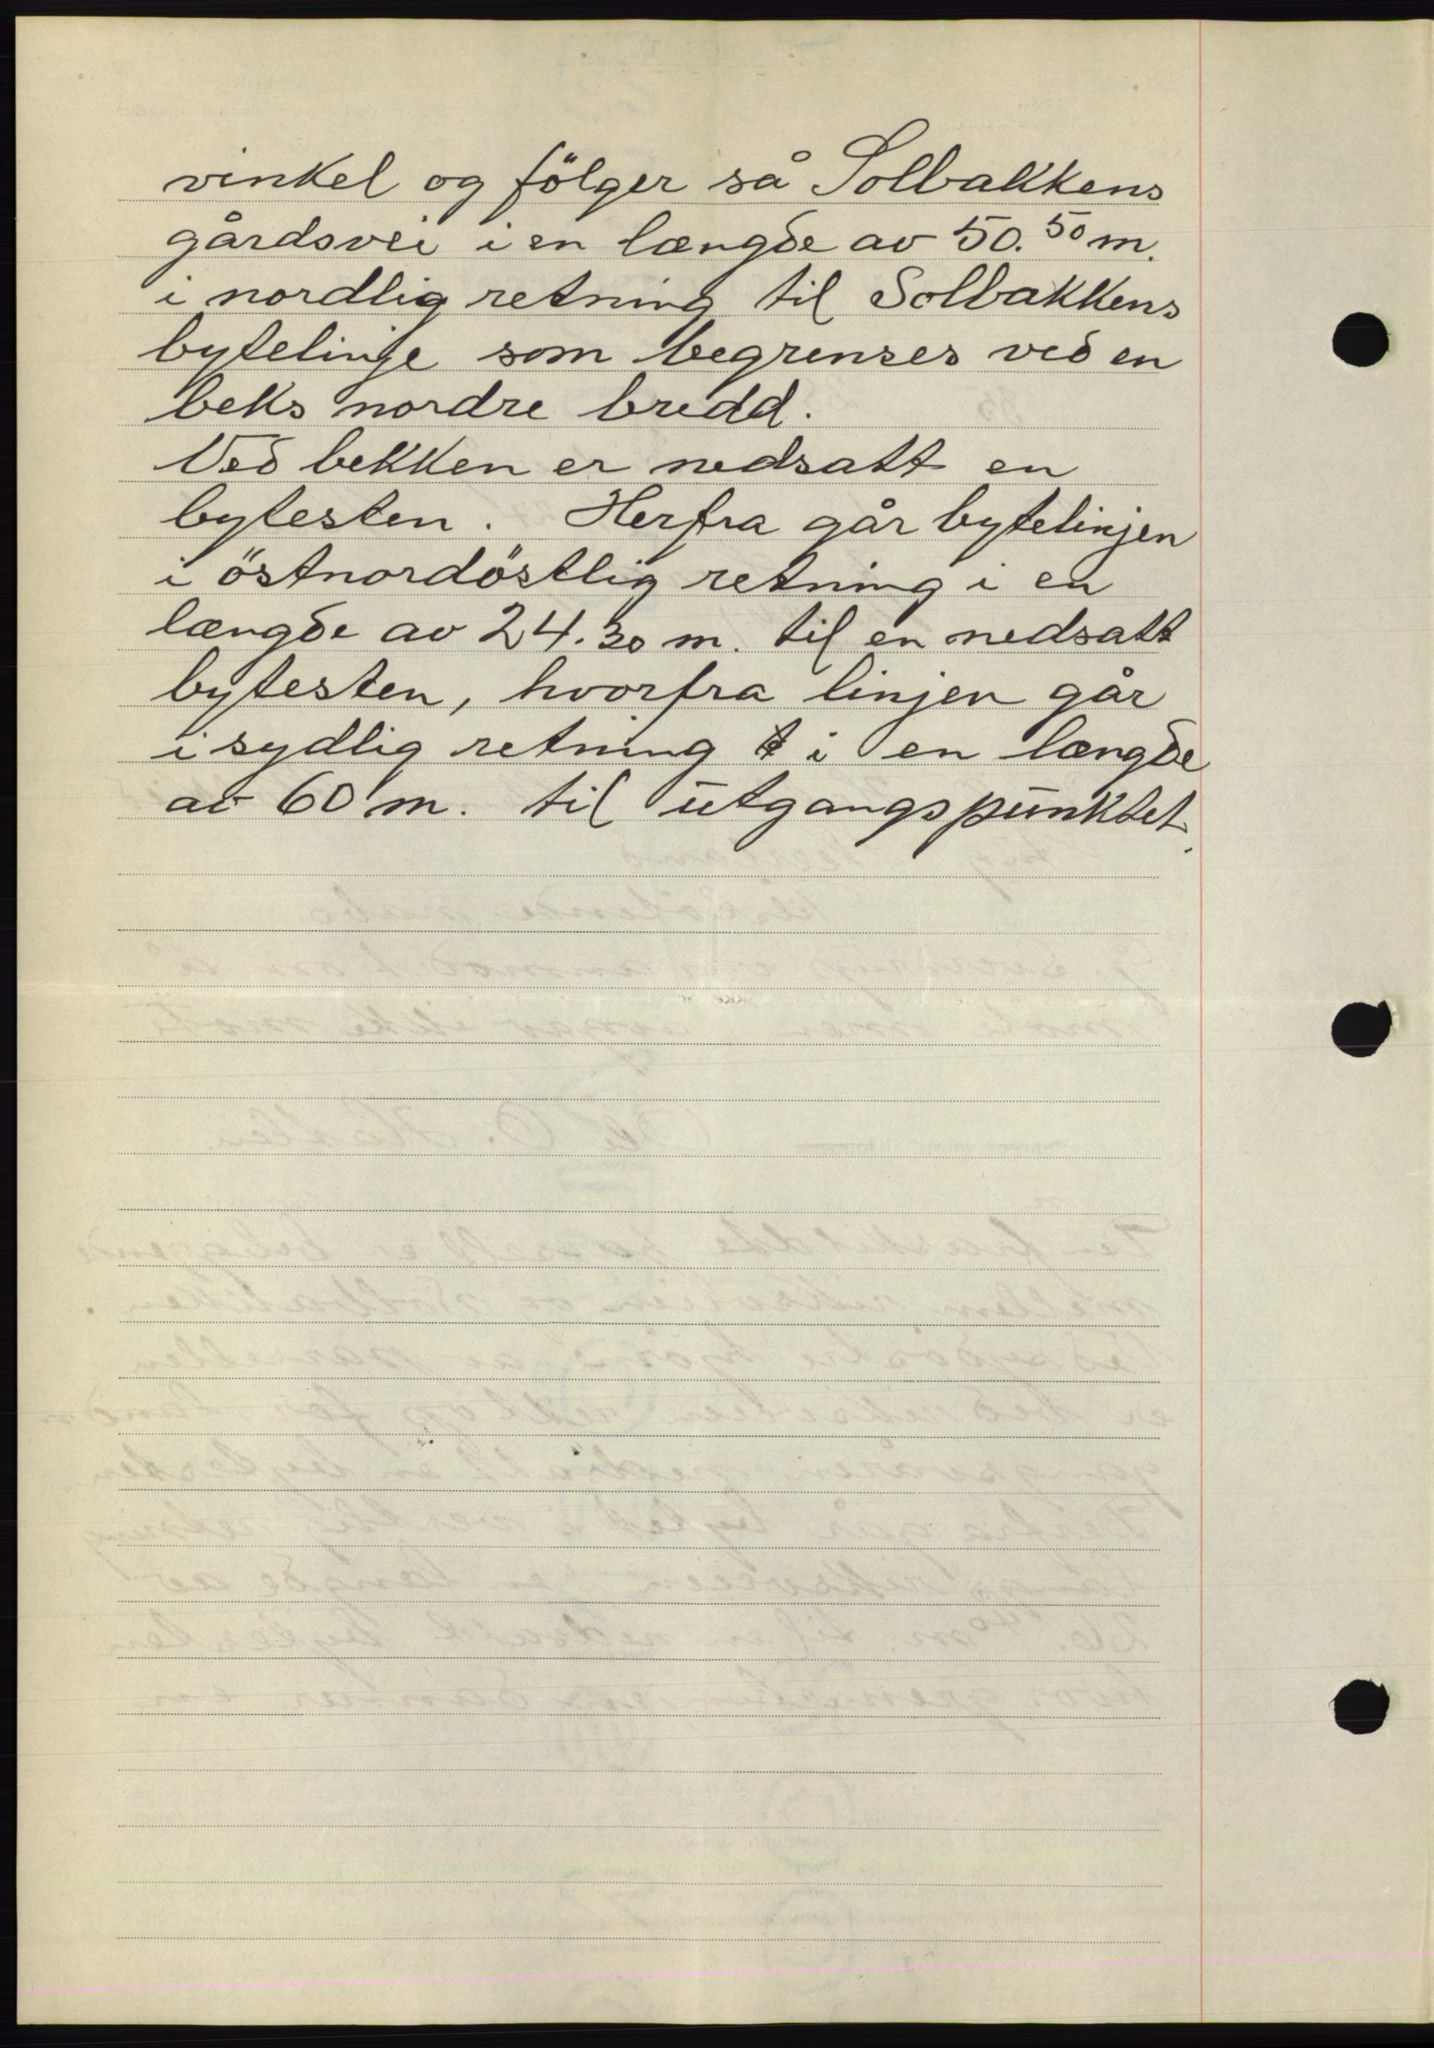 vinkel og fölger så Solbakkens
gårdsvei i en længde av 50.50 m.
i nordlig retning til Solbakkens
bytelinje som begrenses ved en
beks nordre bredd.
Ved bekken er nedsatt en
bytesten. Herfra går bytelinjen
i östnordöstlig retning i en
længde av 24.30 m. til en nedsatt
bytesten, hvorfra linjen går
i sydlig retning i en længde
av 60 m. til utgangspunktet.